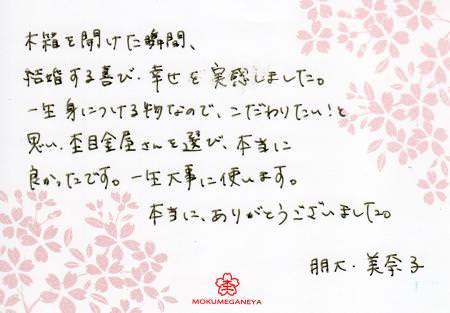 木箱を開けた瞬間、
結婚する喜び、幸せを実感しました。
一生身につける物なので、こだわりたい!と
思い、杢目金屋さんを選び、本当に
良かったです。一生大事に使います。
本当に、ありがとうございました。
朋大・美奈子
MOKUMEGANEYA